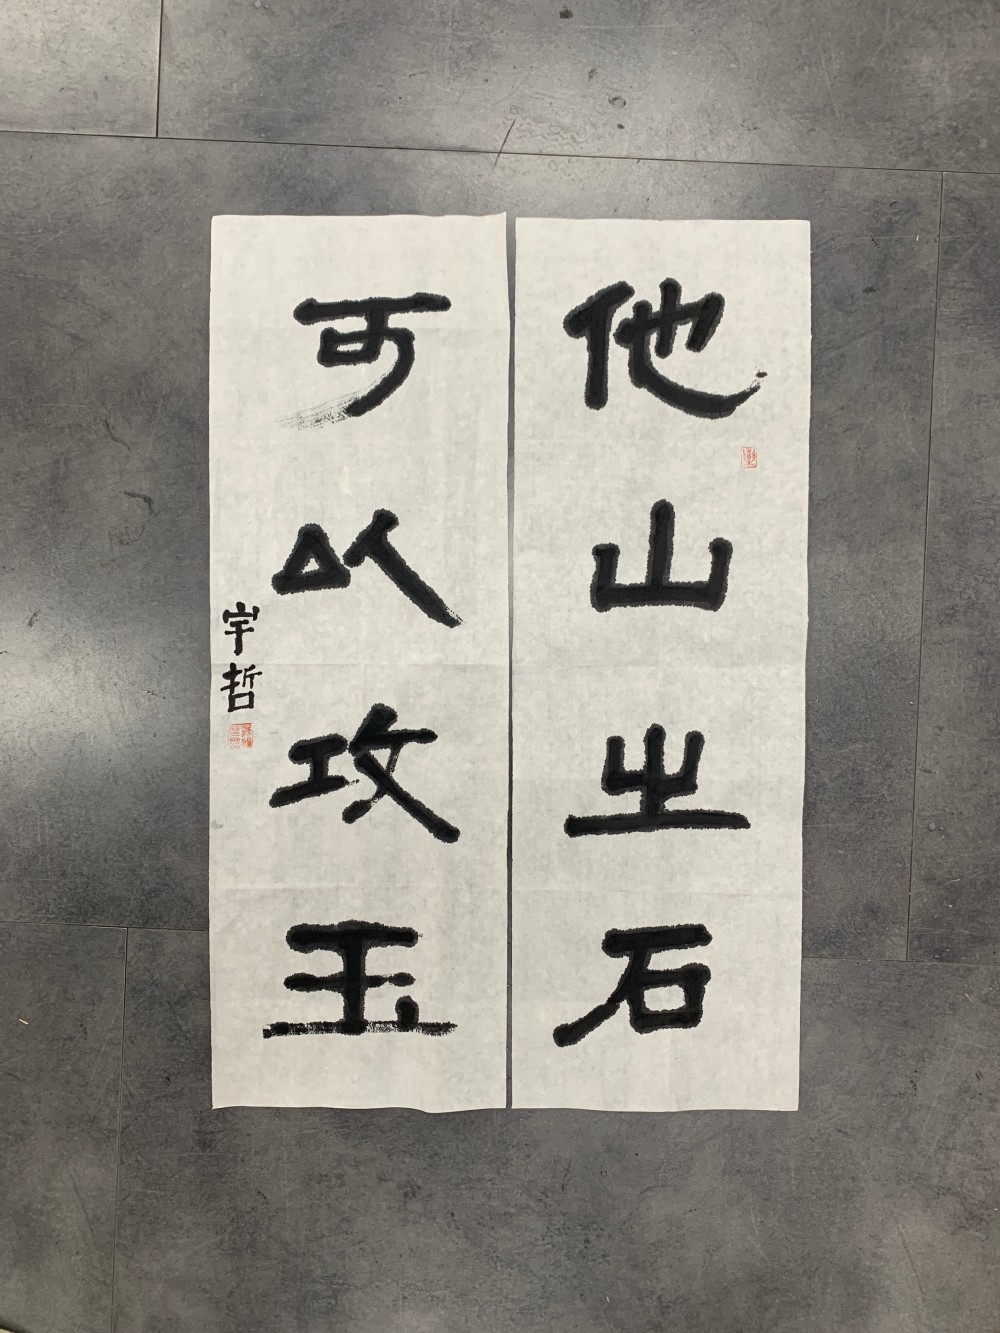 他山之石
可以攻玉
宇哲